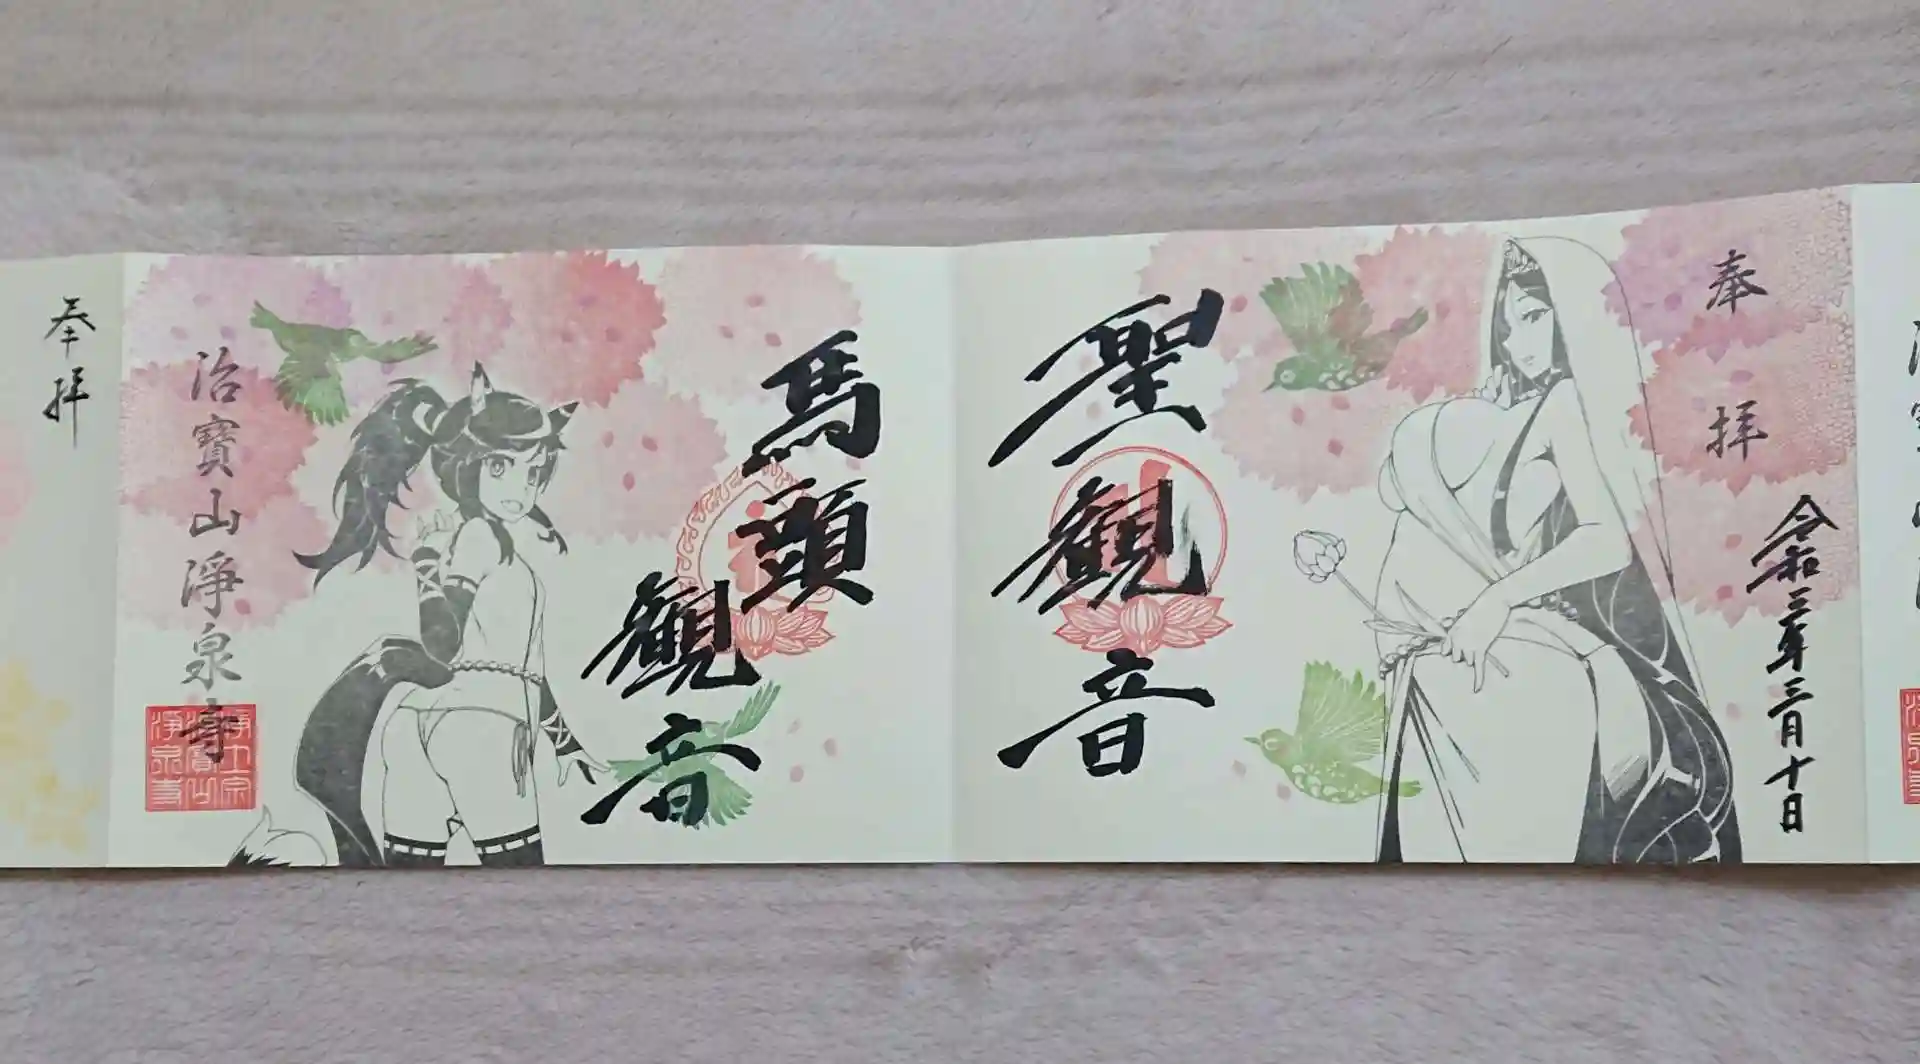 奉拝
令和三年三月十日
聖観音
馬頭
観音
治寳山淨泉寺
淨土宗
治寳山
淨泉寺
奉拝